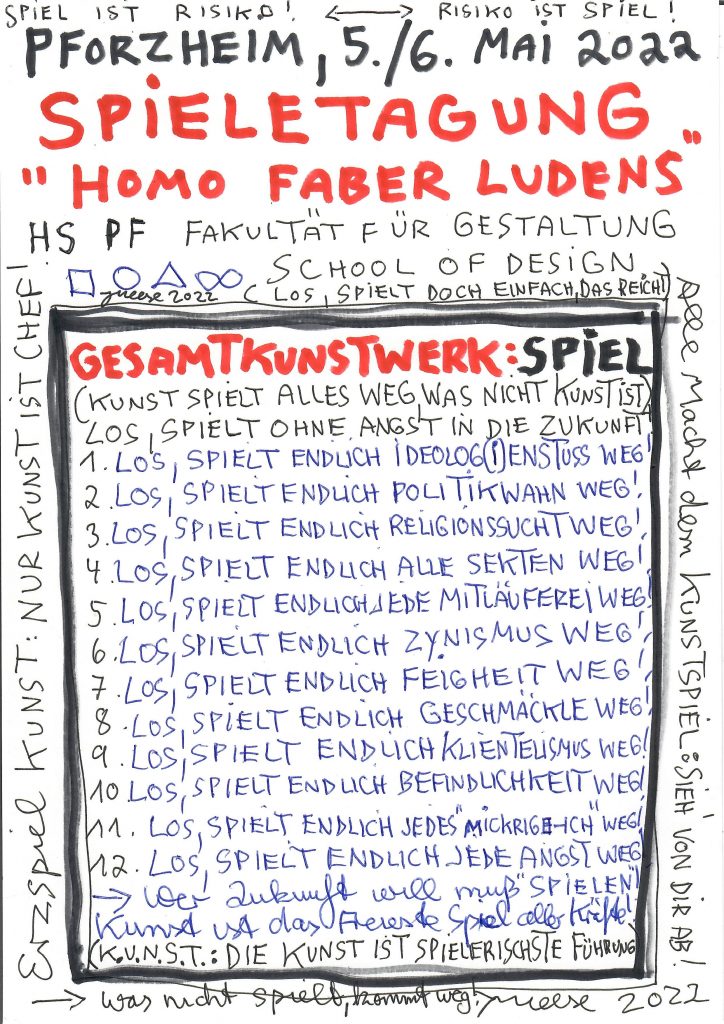 SPIEL IST RISIKO! ⟷ RISIKO IST SPIEL!
PFORZHEIM, 5./6. MAI 2022
SPIELETAGUNG
"HOMO FABER LUDENS"
HS PF FAKULTÄT FÜR GESTALTUNG
SCHOOL OF DESIGN
Jmeese 2022 (LOS, SPIELT DOCH EINFACH, DAS REICHT)
GESAMTKUNSTWERK: SPIEL
(KUNST SPIELT ALLES WEG, WAS NICHT KUNST IST)
LOS, SPIELT OHNE ANGST IN DIE ZUKUNFT
1. LOS, SPIELT ENDLICH IDEOLOG(I)ENSTUSS WEG!
2. LOS, SPIELT ENDLICH POLITIKWAHN WEG!
3. LOS, SPIELT ENDLICH RELIGIONSSUCHT WEG!
4. LOS, SPIELT ENDLICH ALLE SEKTEN WEG!
5. LOS, SPIELT ENDLICH JEDE MITLÄUFEREI WEG!
6. LOS, SPIELT ENDLICH ZYNISMUS WEG!
7. LOS, SPIELT ENDLICH FEIGHEIT WEG!
8. LOS, SPIELT ENDLICH GESCHMÄCKLE WEG!
9. LOS, SPIELT ENDLICH KLIENTELISMUS WEG!
10 LOS, SPIELT ENDLICH BEFINDLICHKEIT WEG!
11. LOS, SPIELT ENDLICH JEDES "MICKRIGE-ICH" WEG!
12. LOS, SPIELT ENDLICH JEDE ANGST WEG
→ Wer Zukunft will muß "SPIELEN"!
Kunst ist das Freieste Spiel aller Kräfte!
(K.U.N.S.T.: DIE KUNST IST SPIELERISCHSTE FÜHRUNG)
→ was nicht spielt, kommt weg! Jmeese 2022
Erzspiel KUNST: NUR KUNST IST CHEF!
Alle Macht dem KUNSTSPIEL: SIEH' VON DIR AB!